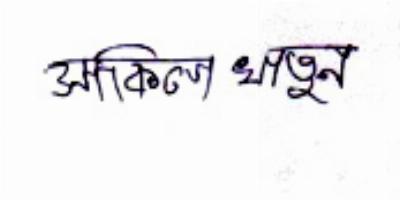 আকিলা খাতুন